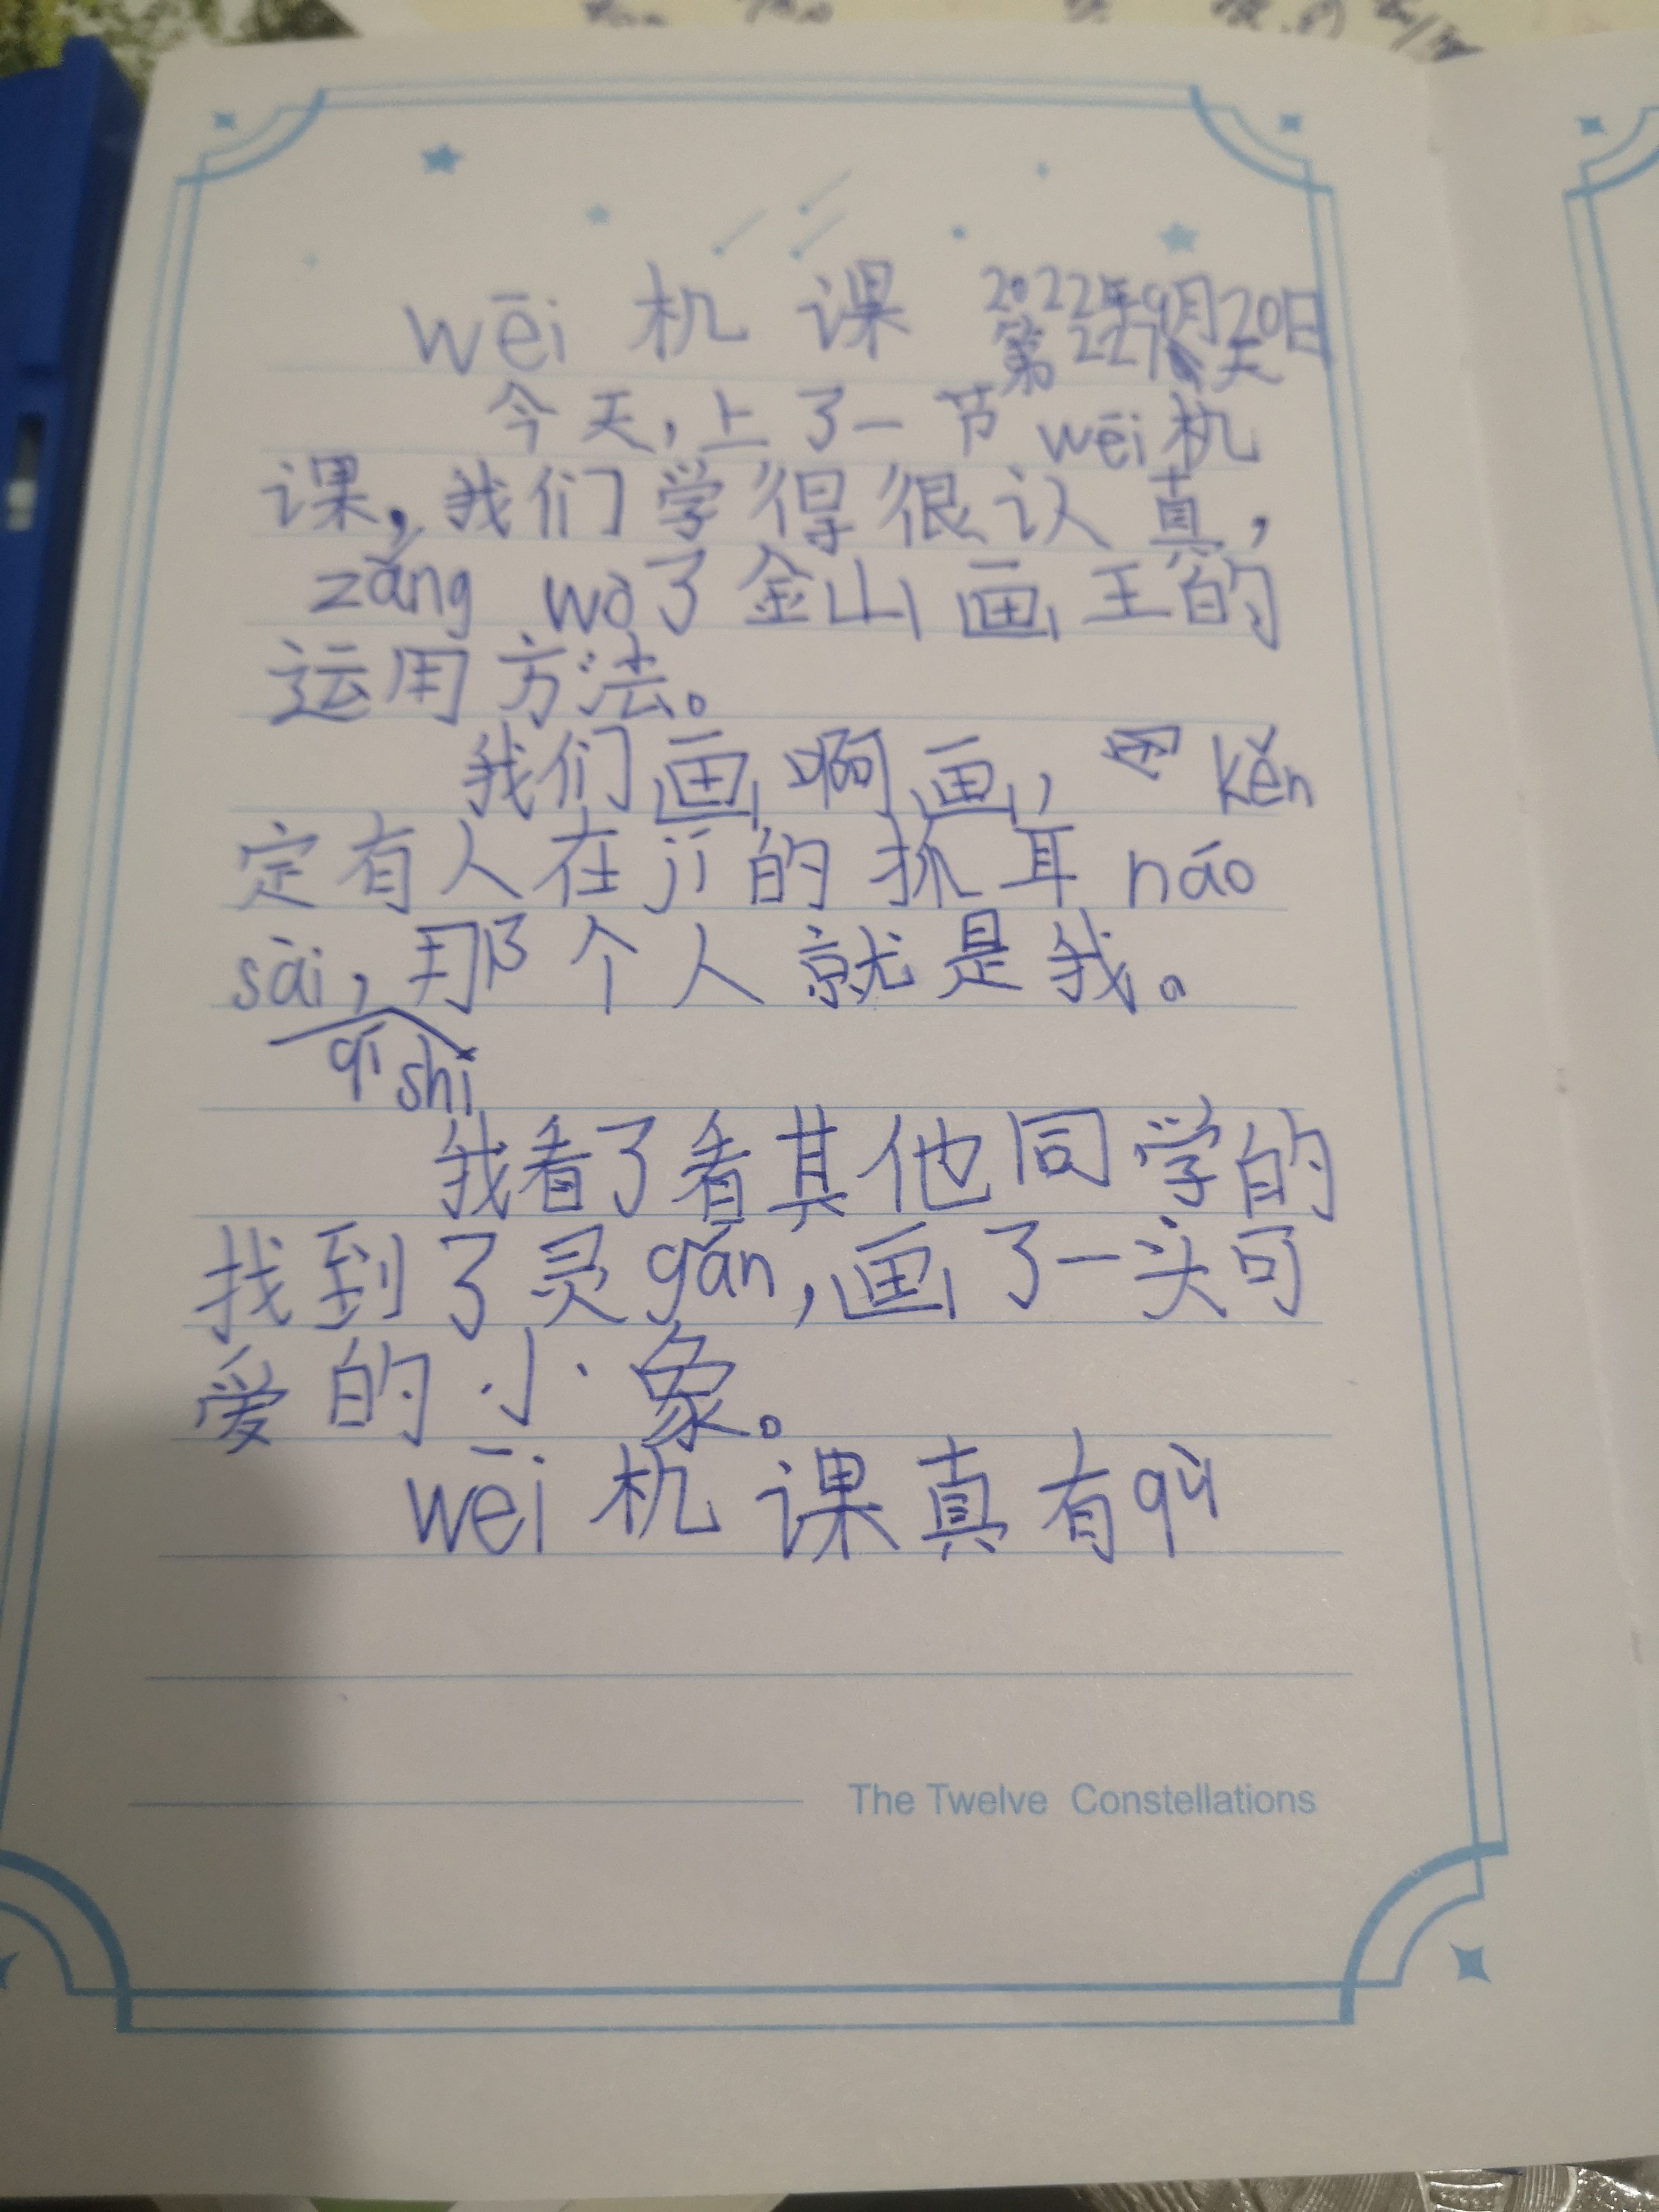 wēi 机 课 2022年9月20日
第227天
今天,上了一节 wēi 机
课,我们学得很认真,
zǎng wò了金山画王的
运用方法。
我们画啊画, kěn
定有人在jí的抓耳náo
sāi,那个人就是我。
qí shí
我看了看其他同学的
找到了灵gǎn,画了一头可
爱的小象。
wēi 机课真有qù
The Twelve Constellations